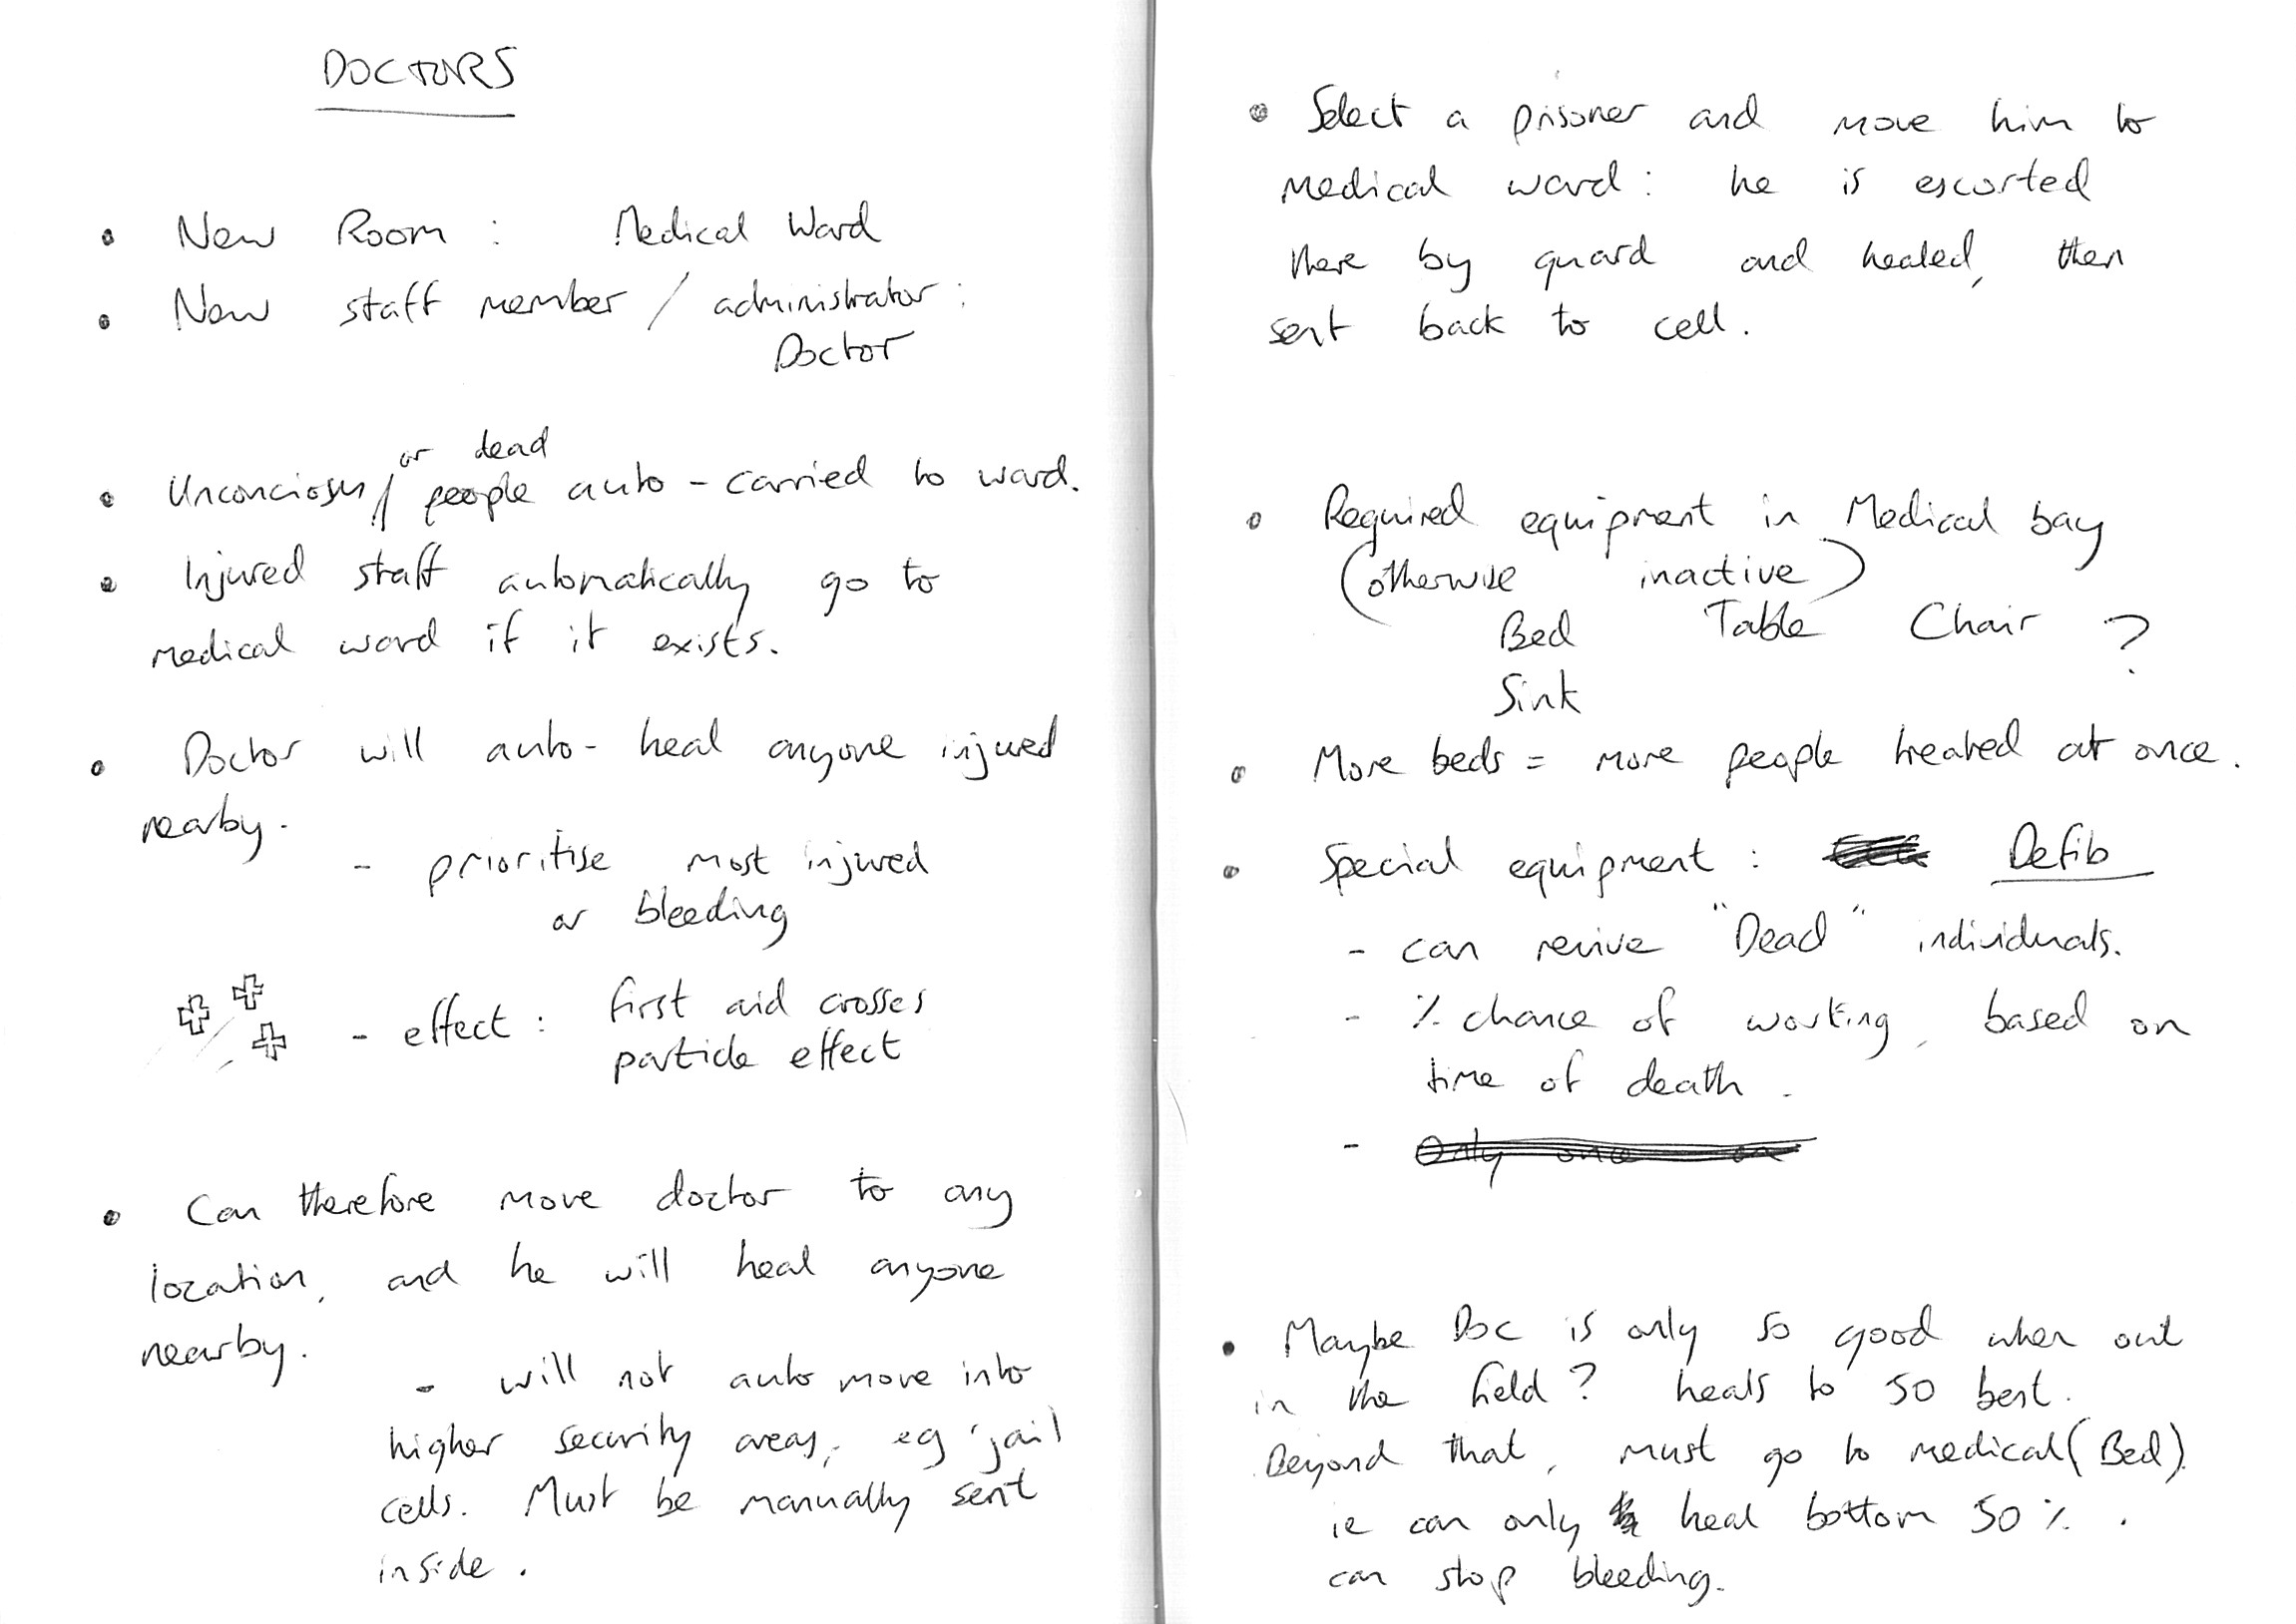 DOCTORS
• New Room : Medical Ward
• New staff member / administrator :
Doctor
or dead
• Unconciosus / people auto - carried to ward.
• Injured staff automatically go to
medical ward if it exists.
• Doctor will auto - heal anyone injured
nearby.
- prioritise most injured
or bleeding
- effect : first aid crosses
particle effect
• Can therefore move doctor to any
location, and he will heal anyone
nearby.
- will not auto move into
higher security areas, eg jail
cells. Must be manually sent
inside.
• Select a prisoner and move him to
medical ward : he is escorted
there by guard and healed, then
sent back to cell.
• Required equipment in Medical bay
(otherwise inactive)
Bed Table Chair ?
Sink
• More beds = more people treated at once.
• Special equipment : Defib
- can revive "Dead" individuals.
- % chance of working, based on
time of death.
- Only once on
• Maybe Doc is only so good when out
in the field? heals to 50 best.
Beyond that, must go to medical (Bed).
ie can only heal bottom 50 %.
can stop bleeding.